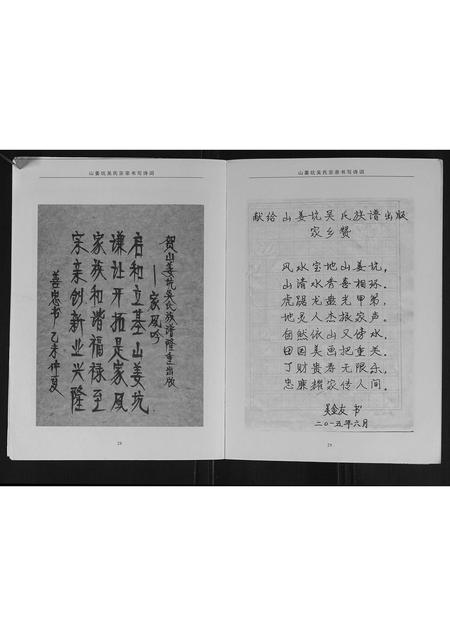 山姜坑吴氏宗亲书写诗词
贺山姜坑吴氏族谱隆重出版
——家风吟
启和立基山姜坑
谦让开拓是家风
家族和谐福禄至
宗亲创新业兴隆
善忠书 乙未仲夏
28
山姜坑吴氏宗亲书写诗词
献给山姜坑吴氏族谱出版
家乡赞
风水宝地山姜坑，
山清水秀喜相环。
虎踞龙盘光甲第，
地灵人杰振家声。
自然依山又傍水，
田园美画把重关。
丁财贵寿无限乐，
忠廉耀家传人间。
吴金友 书
二〇一五年六月
29